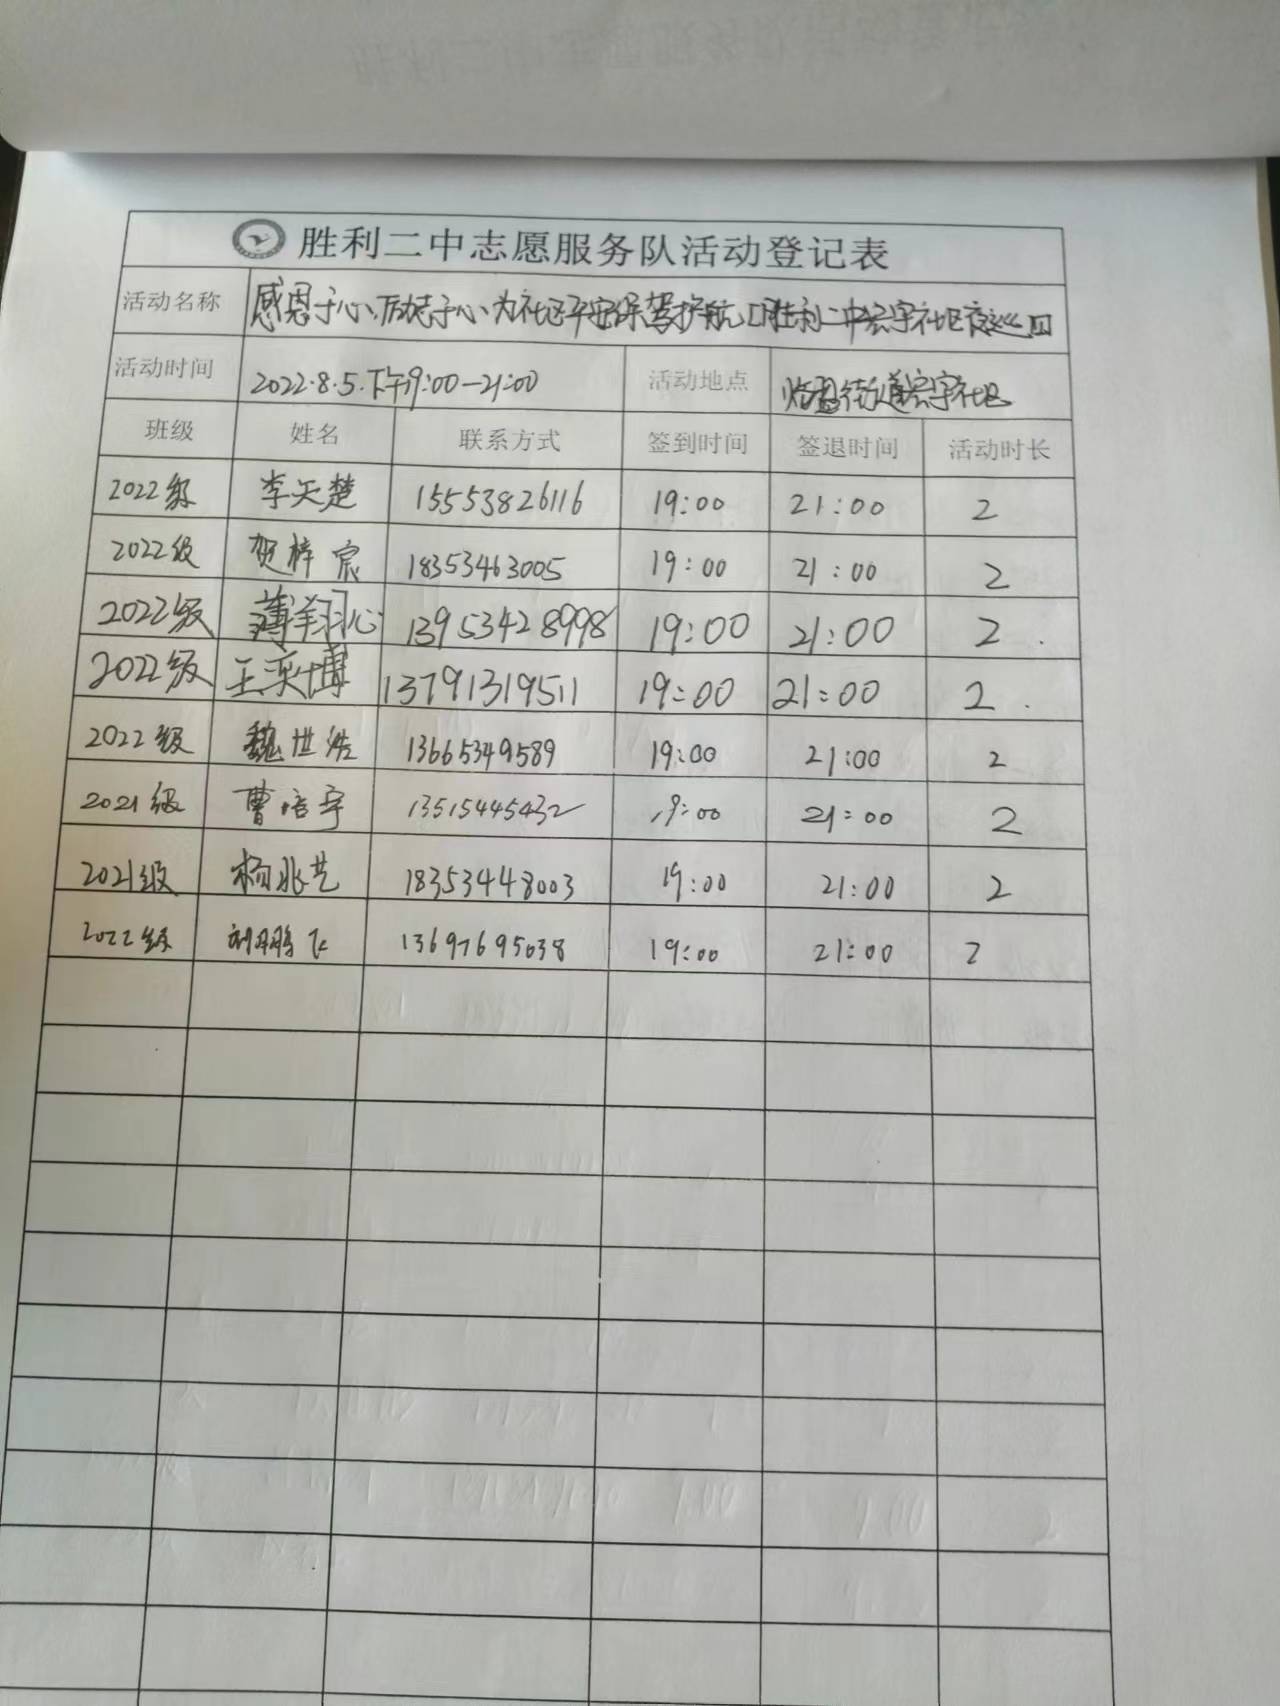 胜利二中志愿服务队活动登记表
活动名称 感恩于心,励志于心,为社区平安保驾护航【胜利二中宏宇社区夜巡】
活动时间 2022.8.5.下午19:00-21:00 活动地点 街道宏宇社区
班级 姓名 联系方式 签到时间 签退时间 活动时长
2022级 李天楚 15553826116 19:00 21:00 2
2022级 贺梓宸 18353463005 19:00 21:00 2
2022级 薄翔心 13953428998 19:00 21:00 2
2022级 王奕博 13791319511 19:00 21:00 2
2022级 魏世浩 13665349589 19:00 21:00 2
2021级 曹培宇 13515445432 19:00 21:00 2
2021级 杨兆艺 18353448003 19:00 21:00 2
2022级 刘鹏飞 13697695038 19:00 21:00 2